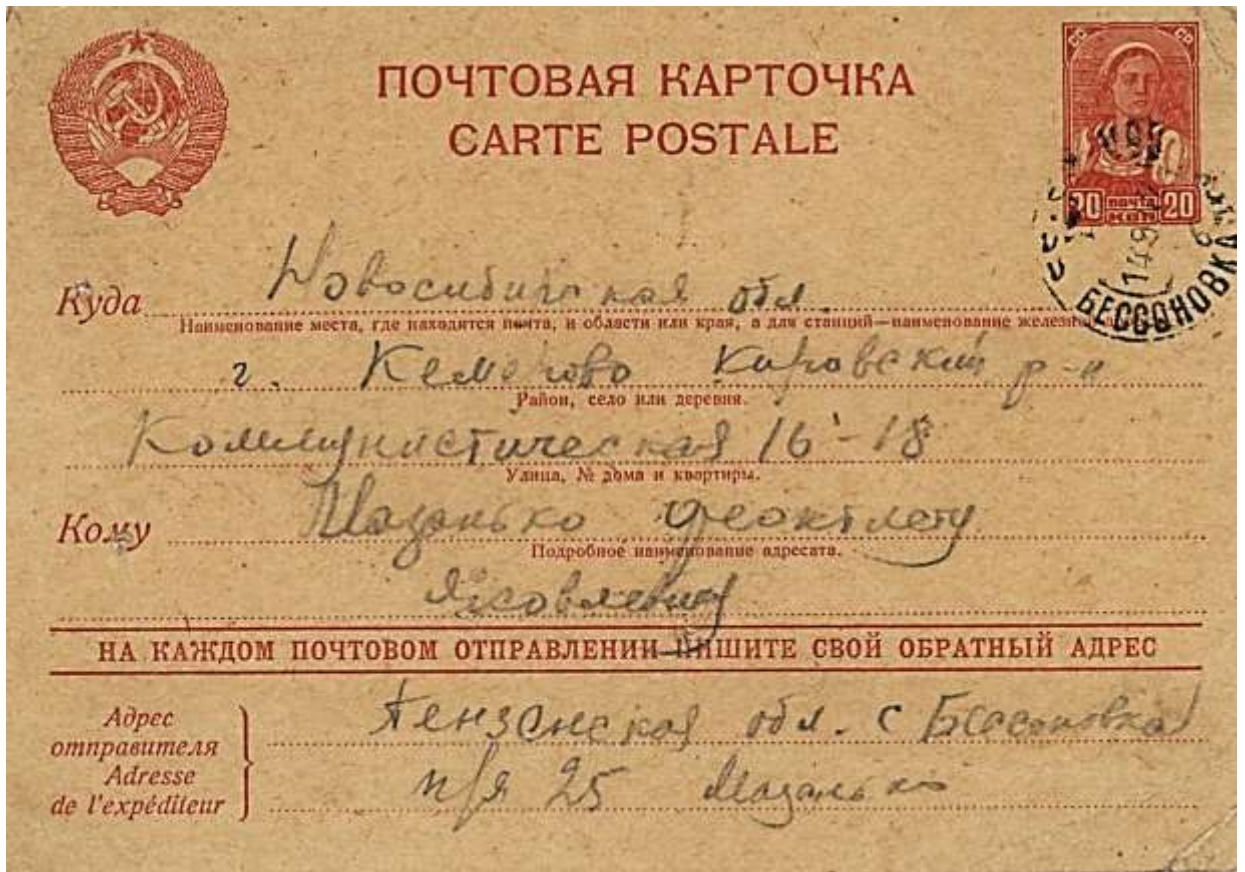 ПОЧТОВАЯ КАРТОЧКА
CARTE POSTALE
СС СР
20 ПОЧТА 20
БЕССОНОВКА
Куда Новосибирская обл.
Наименование места, где находится почта, и области или края, а для станций—наименование
г. Кемерово Кировский р-н
Район, село или деревня.
Коммунистическая 16-18
Улица, № дома и квартиры.
Кому Мазанько
Подробное наименование адресата.
Яковлевичу
НА КАЖДОМ ПОЧТОВОМ ОТПРАВЛЕНИИ ПИШИТЕ СВОЙ ОБРАТНЫЙ АДРЕС
Адрес отправителя
Adresse de l'expéditeur
Пензенская обл. с Бессоновка
п/я 25 Мазанько